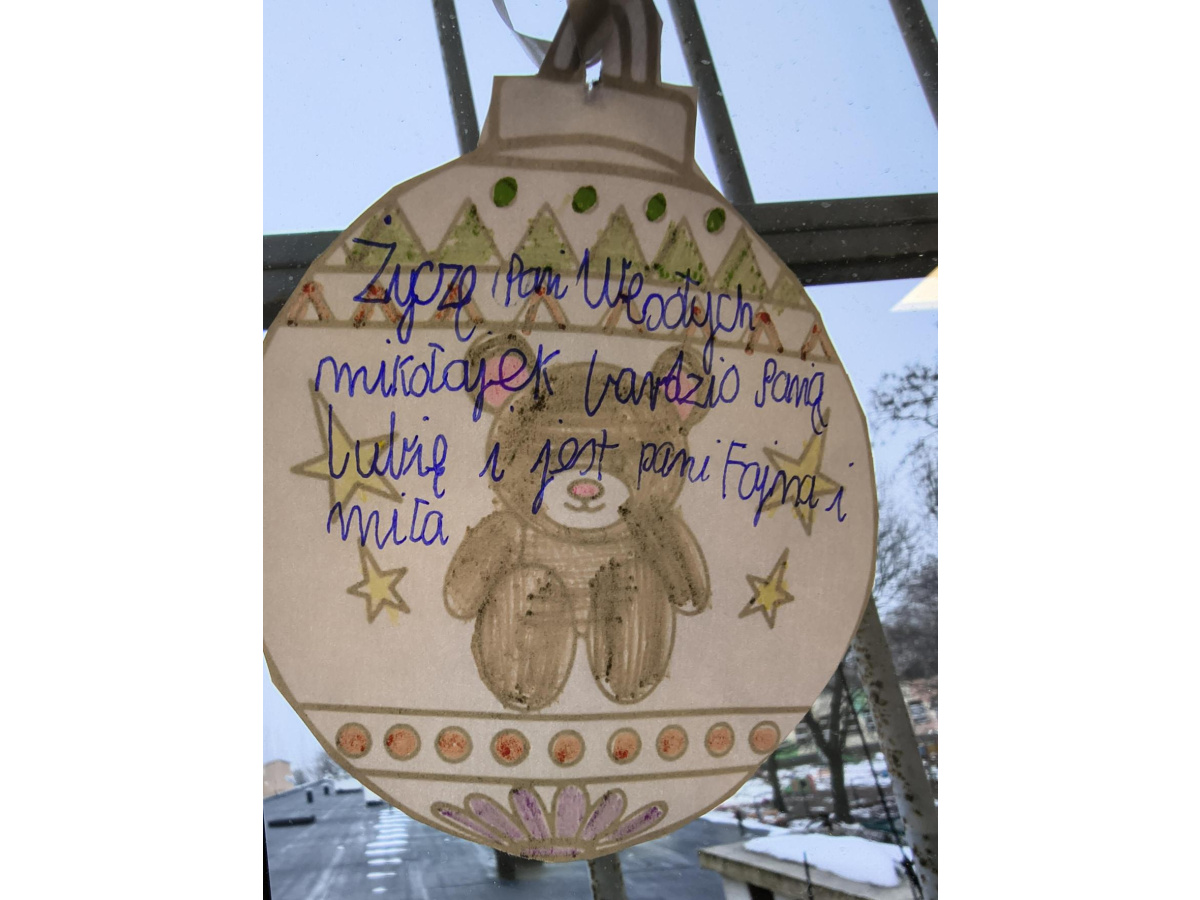 Życzę Pani Węsołych
mikołajek bardzio Panią
Lubię i jest pani Fajna i
miła